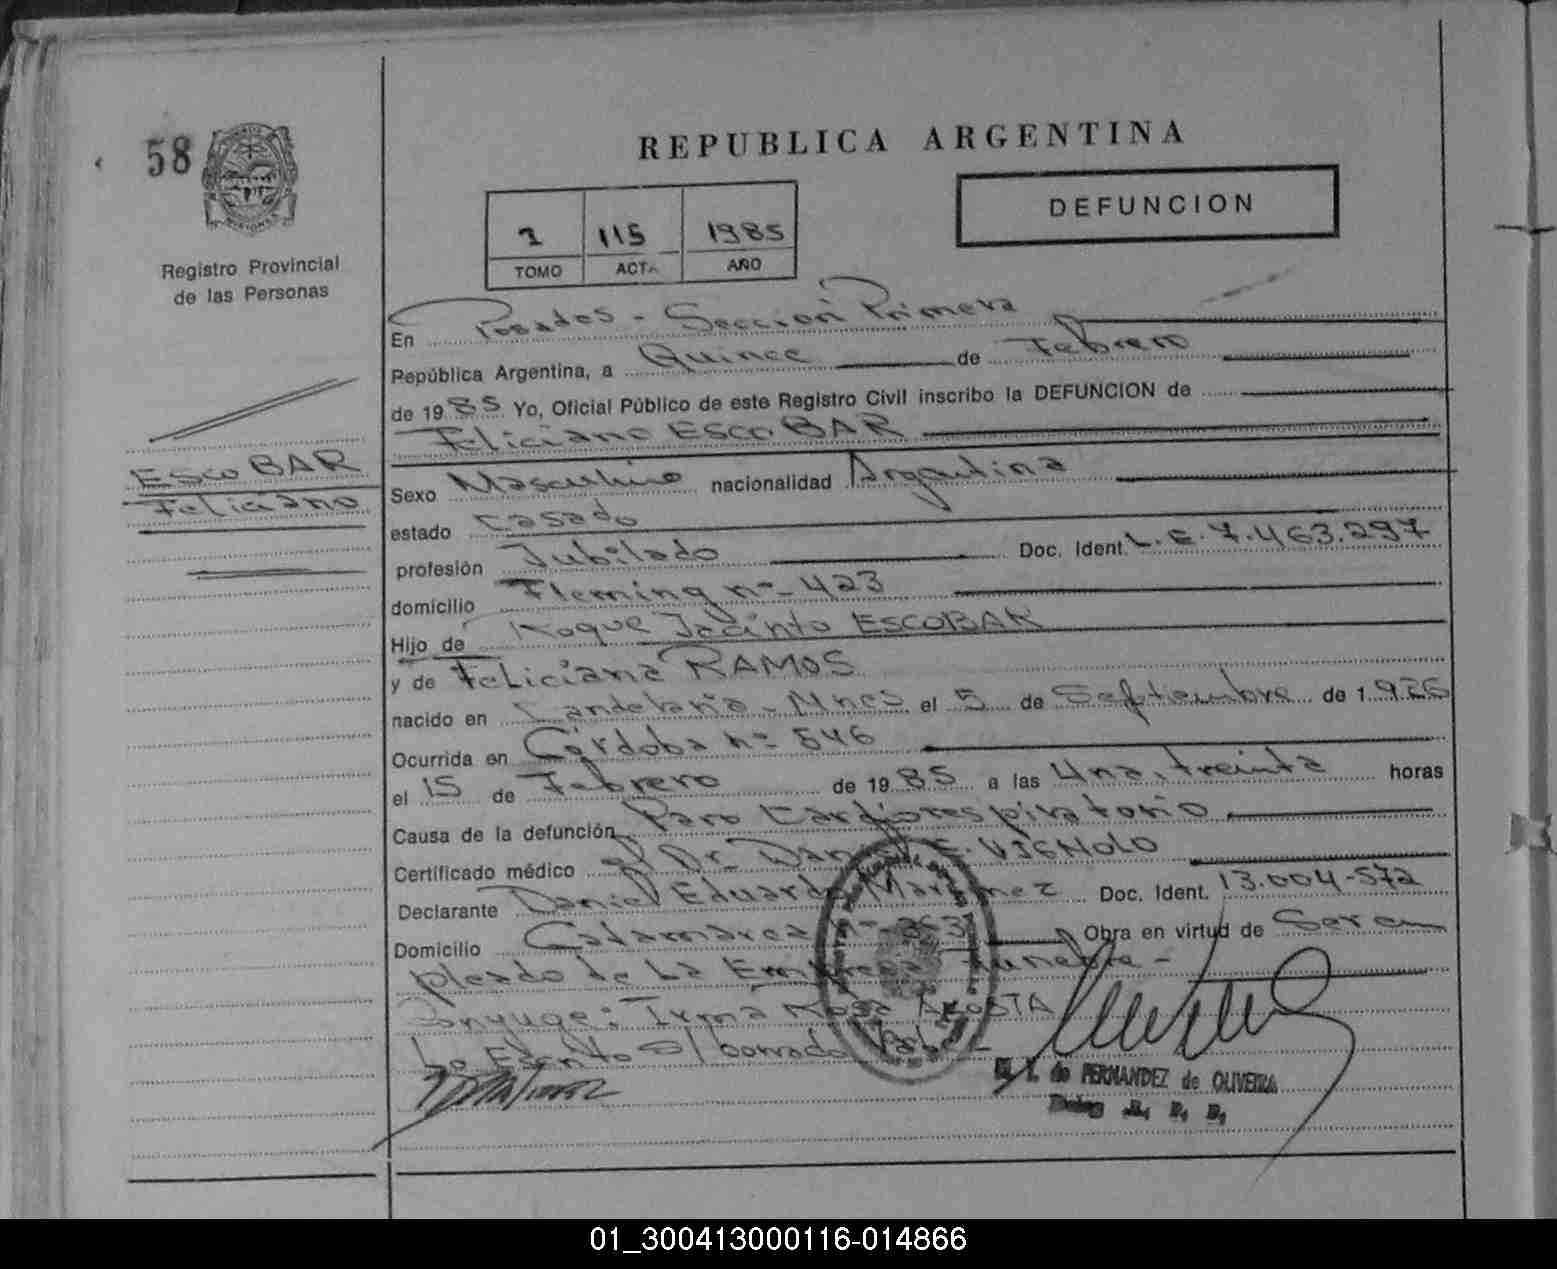 58
REPUBLICA ARGENTINA
DEFUNCION
115 1985
TOMO ACTA AÑO
Registro Provincial
de las Personas
En Posadas - Sección Primera
República Argentina, a Quince de Febrero
de 1985 Yo, Oficial Público de este Registro Civil inscribo la DEFUNCION de
Feliciano ESCOBAR
ESCOBAR
Feliciano
Sexo Masculino nacionalidad Argentina
estado Casado
profesión Jubilado Doc. Ident. L.E. 7.463.297
domicilio Fleming nº 423
Hijo de Roque Jacinto ESCOBAR
y de Feliciana RAMOS
nacido en Candelaria - Mnes el 5 de Septiembre de 1.926
Ocurrida en Córdoba nº 546
el 15 de Febrero de 1985 a las Una, treinta horas
Causa de la defunción Paro Cardiorespiratorio
Certificado médico Dr. Daniel E. VIGNOLO
Declarante Daniel Eduardo Martinez Doc. Ident. 13.004.572
Domicilio Catamarca nº Obra en virtud de Ser em
pleado de La Empresa Funebre -
Conyuge: Irma Rosa ACOSTA
Lo Escrito s/ borrado Vale -
de FERNANDEZ de OLIVEIRA
01_300413000116-014866